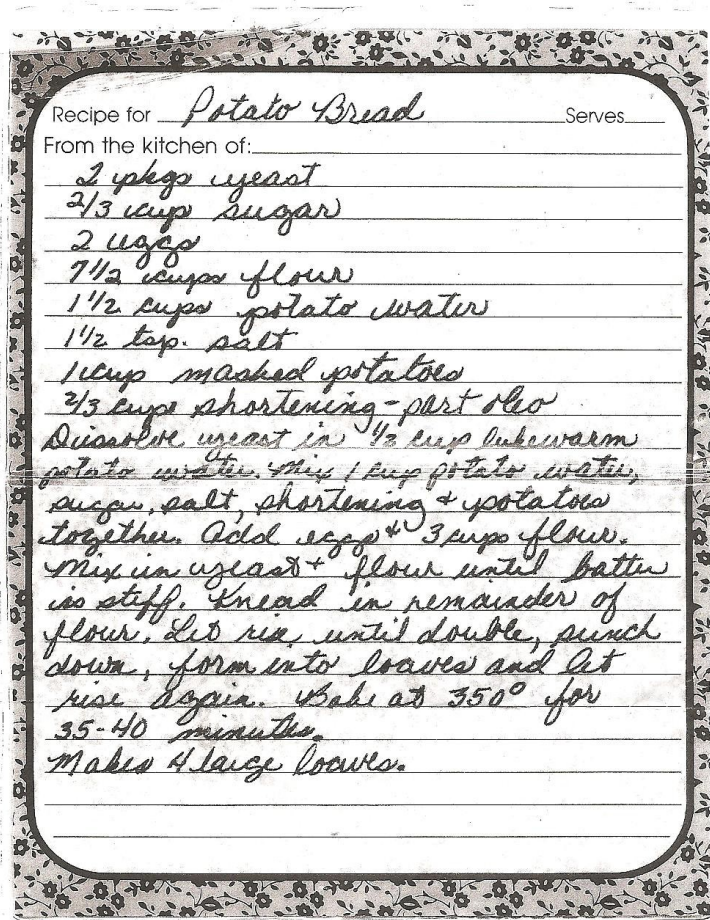 Recipe for Potato Bread Serves
From the kitchen of:
2 pkgs yeast
2/3 cup sugar
2 eggs
7 1/2 cups flour
1 1/2 cups potato water
1 1/2 tsp. salt
1 cup mashed potatoes
2/3 cup shortening - part oleo
Dissolve yeast in 1/2 cup lukewarm
potato water. Mix 1 cup potato water,
sugar, salt, shortening & potatoes
together. Add eggs & 3 cups flour.
Mix in yeast + flour until batter
is stiff. Knead in remainder of
flour. Let rise until double, punch
down, form into loaves and let
rise again. Bake at 350° for
35-40 minutes.
Makes 4 large loaves.